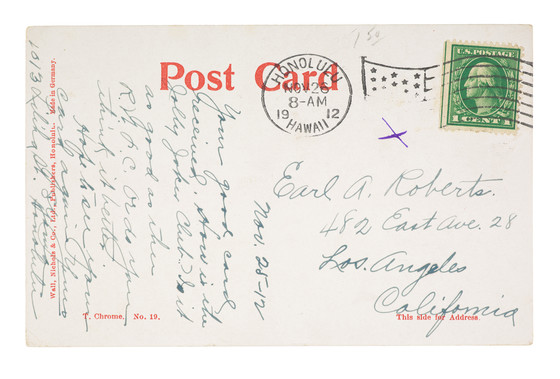 1 50
Post Card
HONOLULU
NOV 26
8-AM
19 12
HAWAII
U.S. POSTAGE
1 CENT 1
Earl A. Roberts.
482 East Ave. 28
Los Angeles
California
This side for Address.
Nov. 25-12
Your good card
received. How is the
Jolly Joker Club. Is it
as good as the
R.P.C. or do you
think it better
card again
Honolulu
T. Chrome. No. 19.
Wall, Nichols & Co., Ltd., Publishers, Honolulu. Made in Germany.